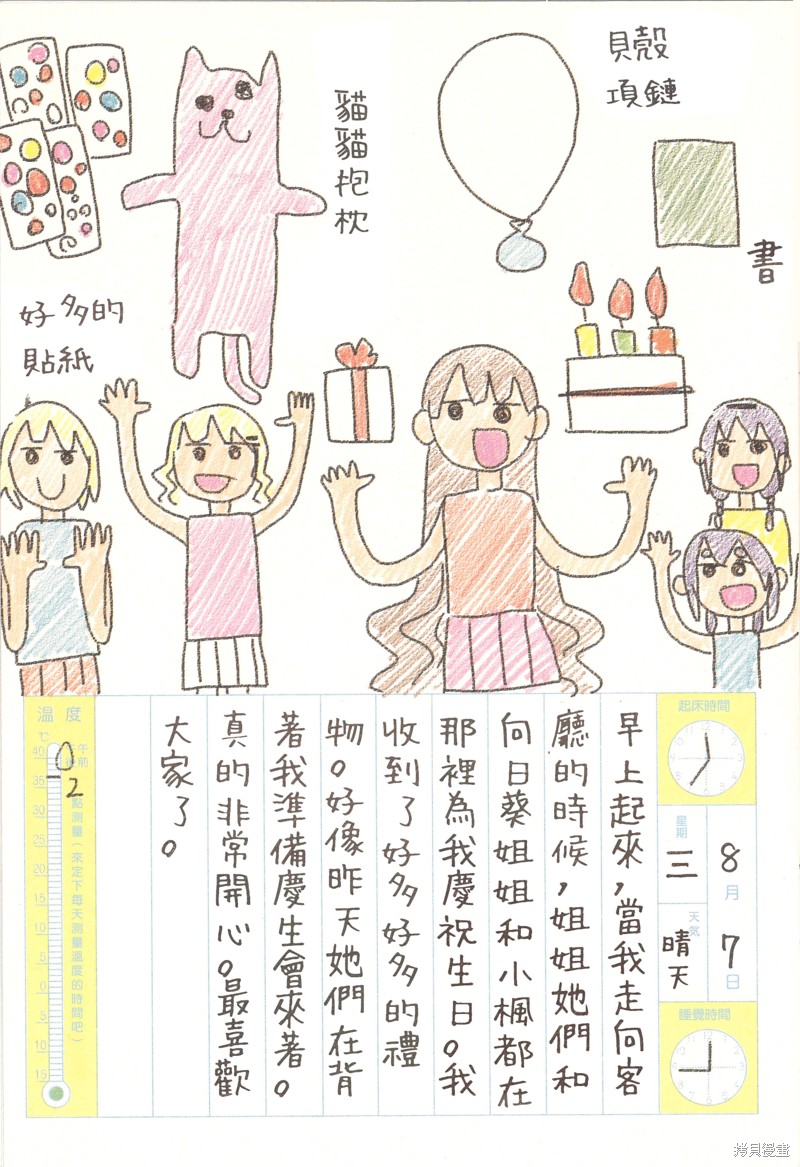 貝殼
項鏈
貓貓抱枕
書
好多的
貼紙
起床時間
8月7日
星期三
天氣
晴天
睡覺時間
早上起來，當我走向客
廳的時候，姐姐她們和
向日葵姐姐和小楓都在
那裡為我慶祝生日。我
收到了好多好多的禮
物。好像昨天她們在背
著我準備慶生會來著。
真的非常開心。最喜歡
大家了。
温度
℃
40
35
30
25
20
15
10
5
0
5
10
15
點測量（來定下每天測量溫度的時間吧）
拷貝漫畫